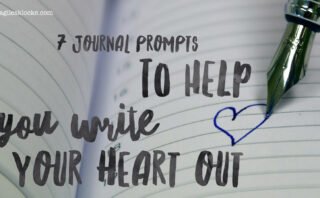 7 JOURNAL PROMPTS
TO HELP
you write
YOUR HEART OUT